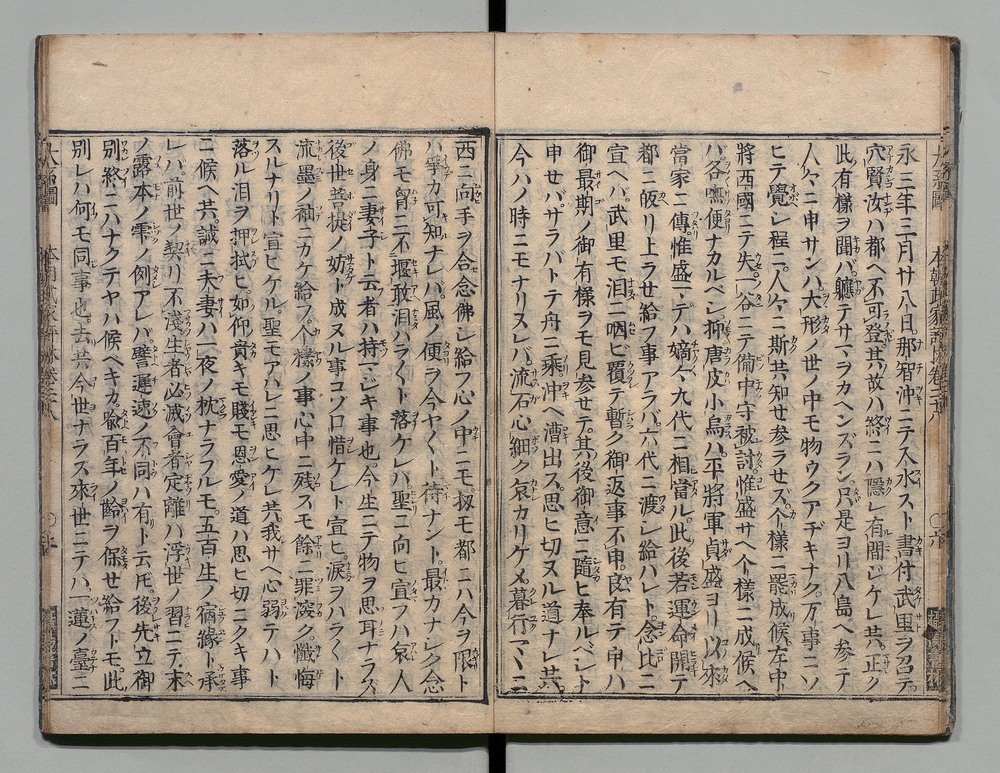 永三年三月廿八日那智沖ニテ入水スト書付武里ヲ召テ
穴賢汝ハ都ヘ不可登其故ハ終ニハ隠レ有間ジケレ共正ク
此有樣ヲ聞バ軈テサマヲカヘンズラン只是ヨリ八島ヘ参テ
人々ニ申サンハ大形ノ世ノ中モ物ウクアヂキナク万事ニソ
ヒテ覺シ程ニ人々ニ斯共知せ参ラせズ个樣ニ罷成候左中
將西國ニテ失一谷ニテ備中守被討惟盛サヘ个樣ニ成候ヘ
バ各嘸便ナカルベシ抑唐皮小烏ハ平將軍貞盛ヨリ以來
當家ニ傳惟盛マデハ嫡々九代ニ相當ル此後若運命開テ
都ニ皈リ上ラせ給フ事アラバ六代ニ渡シ給ハレト念比ニ
宣ヘバ武里モ泪ニ咽ビ覆テ暫ク御返事不申良有テ申ハ
御最期ノ御有樣ヲモ見参せテ其後御意ニ隨ヒ奉ルベシト
申せバサラバトテ舟ニ乘沖ヘ漕出ス思ヒ切ヌル道ナレ共
今ハノ時ニモナリヌレバ流石心細ク哀カリケメ暮行マヽニ
西ニ向手ヲ合念佛シ給フ心ノ中ニモ扨モ都ニハ今ヲ限ト
ハ爭カ可知ナレバ風ノ便ヲ今ヤ〱ト待ナント最カナシク念
佛モ留ニ不堰敢泪ハラ〱ト落ケレハ聖ニ向ヒ宣フハ哀人
ノ身ニ妻子ト云者ハ持マジキ事也今生ニテ物ヲ思耳ナラズ
後世菩提ノ妨ト成ヌル事コソ口惜ケレト宣ヒ涙ヲハラ〱ト
流墨ノ袖ニカケ給フ个樣ノ事心中ニ残スモ餘ニ罪深ク懺悔
スルナリト宣ヒケル聖モアハレニ思ヒケレ共我サヘ心弱テハト
落ル泪ヲ押拭ヒ如仰貴キモ賤モ恩愛ノ道ハ思ヒ切ニクキ事
ニ候ヘ共誠ニ夫妻ハ一夜ノ枕ナラフルモ五百生ノ宿縁ト承
レバ前世ノ契リ不淺生者必滅會者定離ハ浮世ノ習ニテ末
ノ露本ノ雫ノ例アレバ譬遲速ノ不同ハ有ト云氐後先立御
別終ニハナクテヤハ候ヘキカ縱百年ノ齡ヲ保せ給フトモ此
別レハ何モ同事也去共今世ナラス來世ニテハ一蓮ノ臺ニ